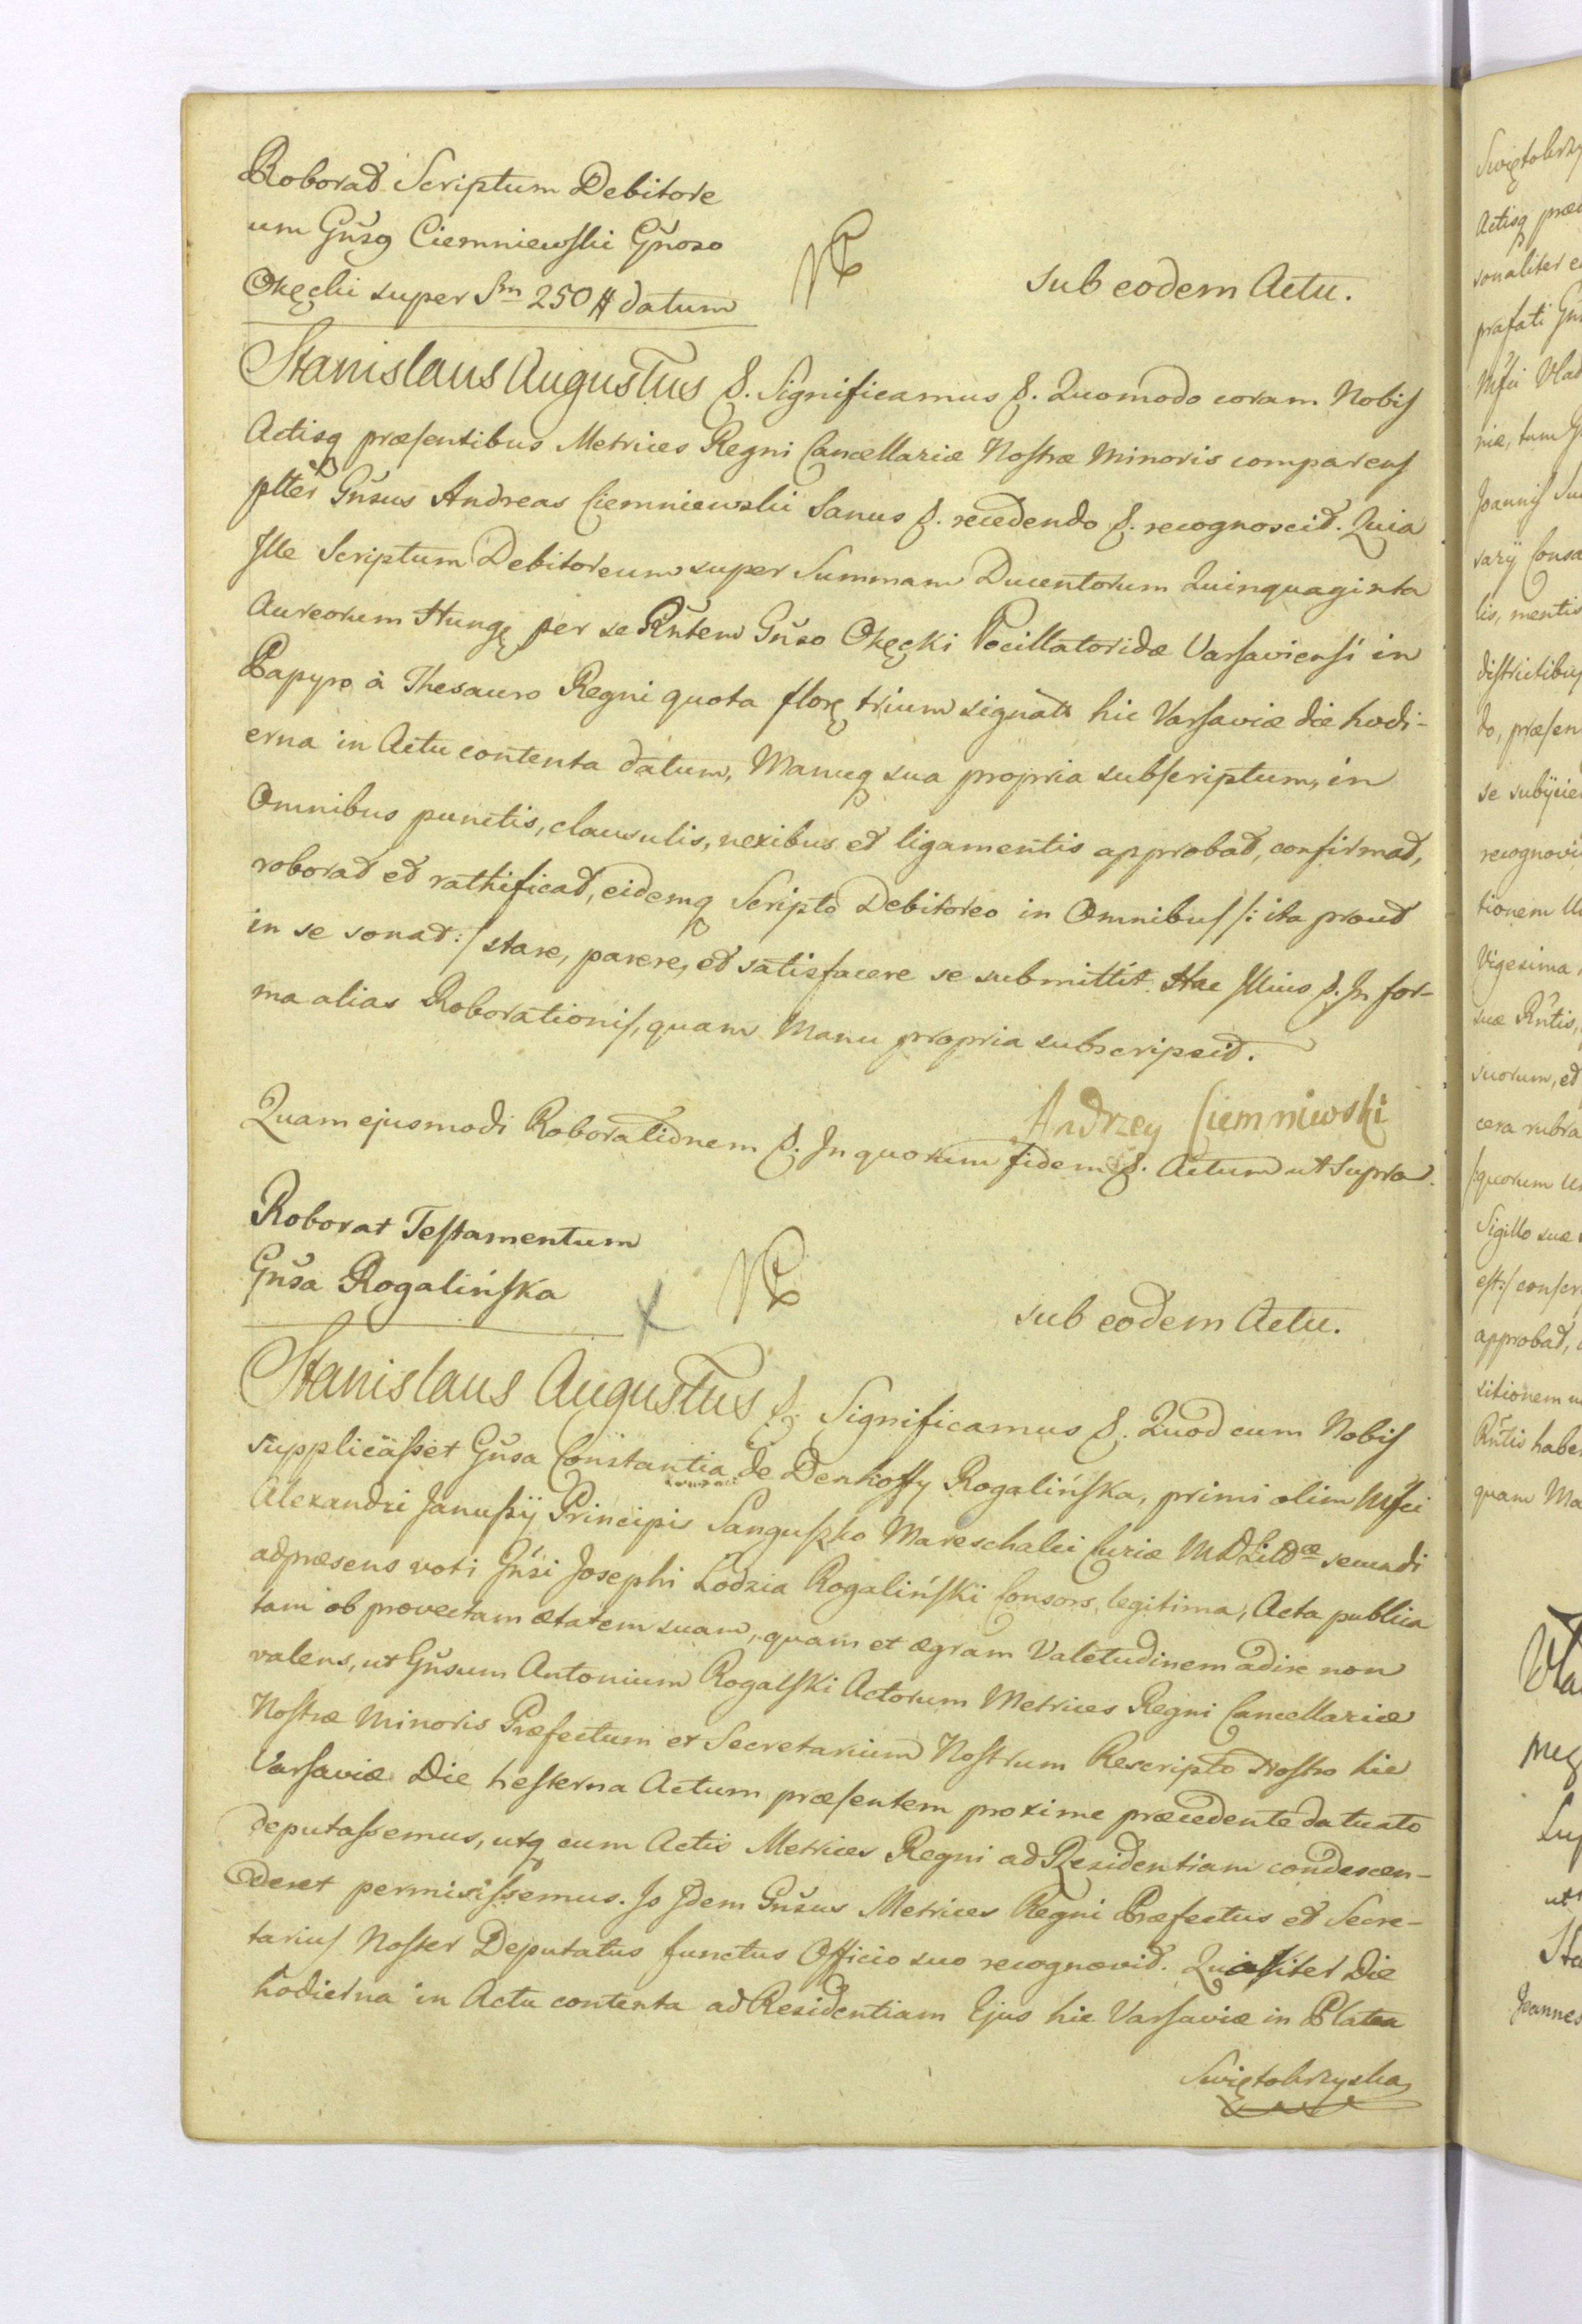 Roborat Scriptum Debitore
um Gnsg Ciemniewski Gnoso
Okęcki super Sm 250 # datum
sub eodem Actu.
Stanislaus Augustus &. Significamus &. Quomodo coram Nobis
Actisq præsentibus Metrices Regni Cancellariæ Nostræ Minoris comparens
plter Gnsus Andreas Ciemniewski Sanus &. recedendo &. recognoscit. Quia
Ille Scriptum Debitoreum super Summam Ducentorum Quinquaginta
Aureorum Hung per se Rntem Gnso Okęcki Pocillatoridæ Varsaviensi in
Papyro à Thesauro Regni quota flor trium signata hic Varsaviæ die hodi-
erna in Actu contenta datum, Manuq sua propria subscriptum, in
Omnibus punctis, clausulis, nexibus et ligamentis approbat, confirmat,
roborat et rathificat, eidemq Scripto Debitoreo in Omnibus /: ita prout
in se sonat :/ stare, parere, et satisfacere se submittit. Hac Illius &. In for-
ma alias Roborationis, quam Manu propria subscripsit.
Andrzey Ciemniewski
Quam ejusmodi Roborationem &. In quorum fidem &. Actum ut Supra.
Roborat Testamentum
Gnsa Rogalińska
sub eodem Actu.
Stanislaus Augustus &. Significamus &. Quod cum Nobis
supplicasset Gnsa Constantia de Denhoffy Rogalińska, primi olim Mfci
Alexandri Janussij Principis Sanguszko Mareschalci Curiæ MDLitdæ secundi
adpræsens voti Gnsi Josephi Łodzia Rogaliński Consors legitima, Acta publica
tam ob provectam ætatem suam, quam et ægram Valetudinem adire non
valens, ut Gnsum Antonium Rogalski Actorum Metrices Regni Cancellariæ
Nostræ Minoris Præfectum et Secretarium Nostrum Rescripto Nostro hic
Varsaviæ Die hesterna Actum præsentem proxime præcedente datuato
deputassemus, utq cum Actis Metrices Regni ad Residentiam condescen-
deret permisissemus. Is Idem Gnsus Metrices Regni Præfectus et Secre-
tarius Noster Deputatus functus Officio suo recognovit. Quia Iter Die
hodierna in Actu contenta ad Residentiam Ejus hic Varsaviæ in Platea
Swiętokrzyska